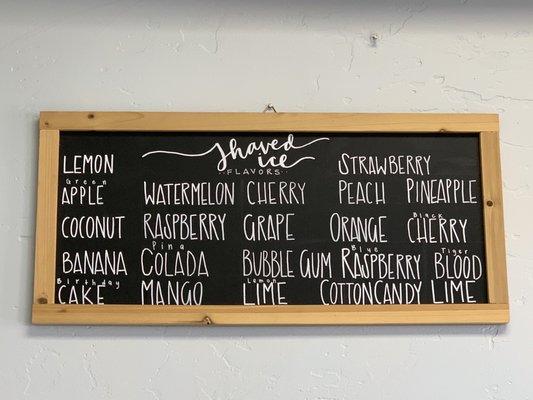 Shaved
ice
FLAVORS
LEMON STRAWBERRY
Green APPLE WATERMELON CHERRY PEACH PINEAPPLE
COCONUT RASPBERRY GRAPE ORANGE Black CHERRY
BANANA Pina COLADA BUBBLE GUM Blue RASPBERRY Tiger BLOOD
Birthday CAKE MANGO Lemon LIME COTTON CANDY LIME